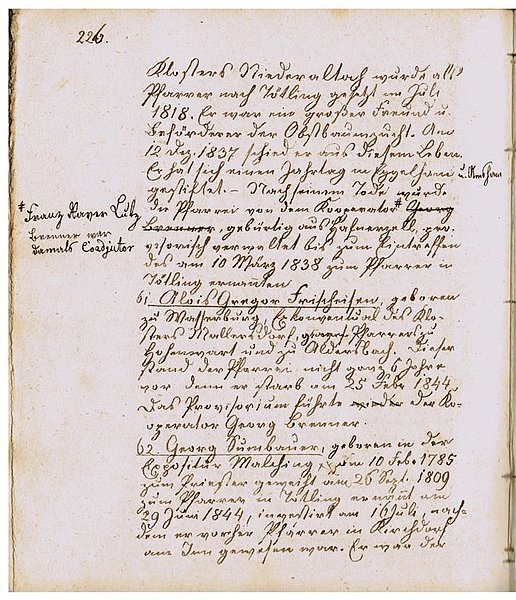 226.
Klosters Niederaltach wurde als
Pfarrer nach Tötling gesetzt im Juli
1818. Er war ein großer Freund u.
Beförderer der Obstbaumzucht. Am
12 Dez. 1837 schied er aus diesem Leben.
Er hat sich einen Jahrtag in Eggelham
gestiftet. – Nach seinem Tode wurde
die Pfarrei von dem Kooperator # Georg
Brenner, gebürtig aus Hafnerzell, pro-
visorisch verwaltet bis zum Eintreffen
des am 10 März 1838 zum Pfarrer in
Tötling ernannten
# Franz Xaver Lutz
Brenner war
damals Coadjutor
61 Alois Gregor Frischeisen, geboren
zu Wasserburg, Exkonventual des Klo-
sters Mallersdorf, Pfarrers zu
Hohenwart und zu Aldersbach. Dieser
stand der Pfarrei nicht ganz 6 Jahre
vor denn er starb am 25 Febr 1844.
Das Provisorium führte wieder der Ko-
operator Georg Brenner.
62 Georg Sumbauer, geboren in der
Expositur Malching am 10 Febr 1785
zum Priester geweiht am 26 Sept. 1809
zum Pfarrer in Tötling ernannt am
29 Juni 1844, investirt am 16 Juli, nach-
dem er vorher Pfarrer in Kirchdorf
am Inn gewesen war. Er war der